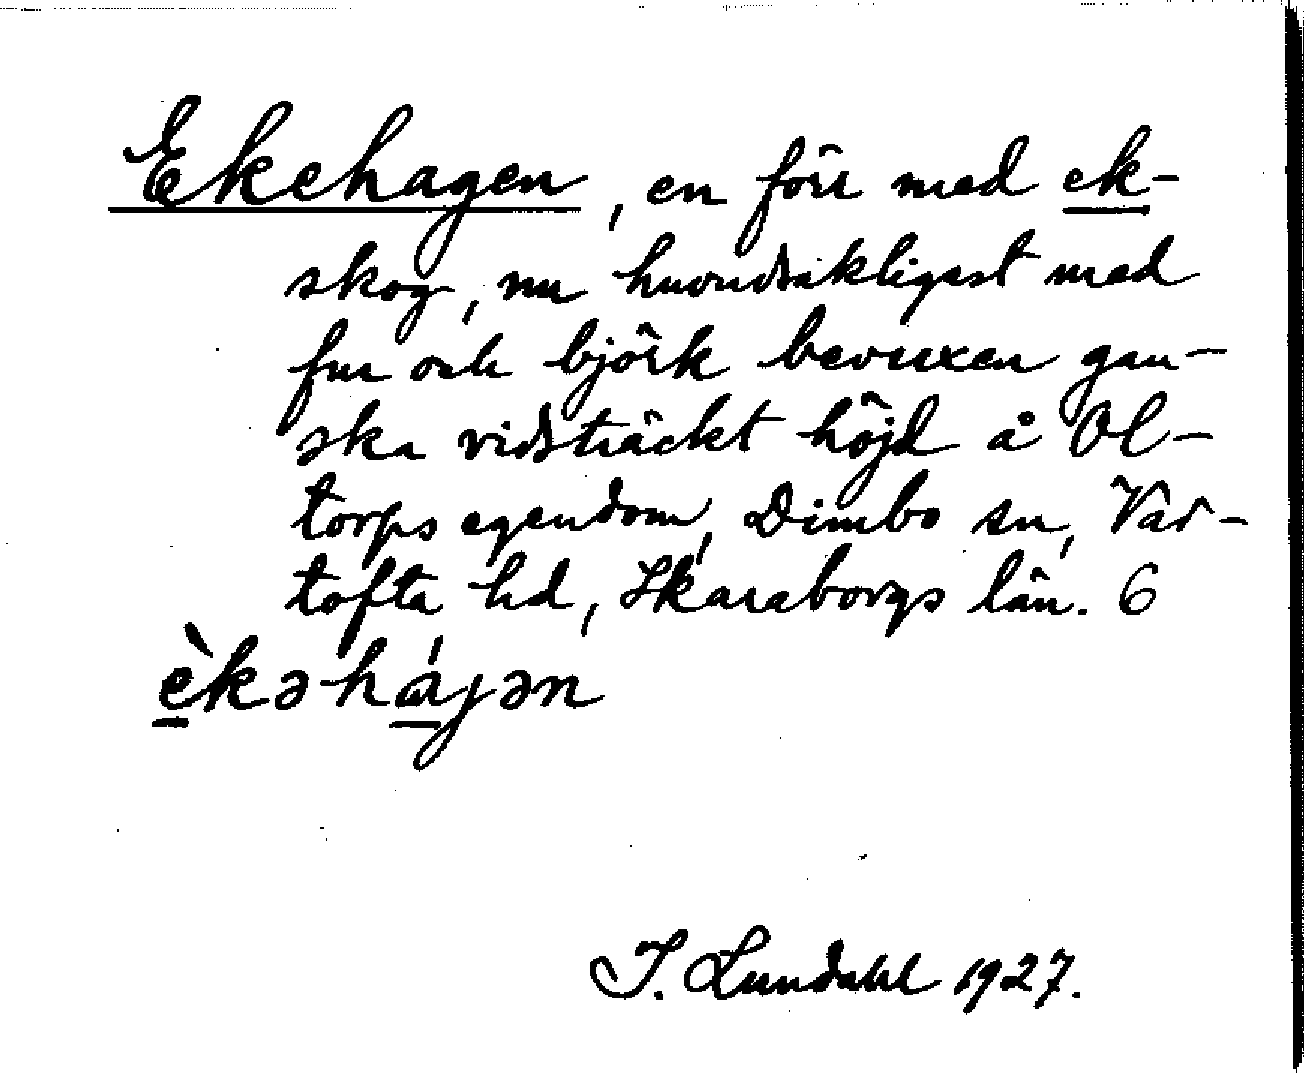 Ekehagen, en förr med ek-
skog, nu huvudsakligast med
fur och björk bevuxen gan-
ska vidsträckt höjd å Ol-
torps egendom, Dimbo sn, Var-
tofta hd, Skaraborgs län. 6
èkə-hájən
I. Lundahl 1927.